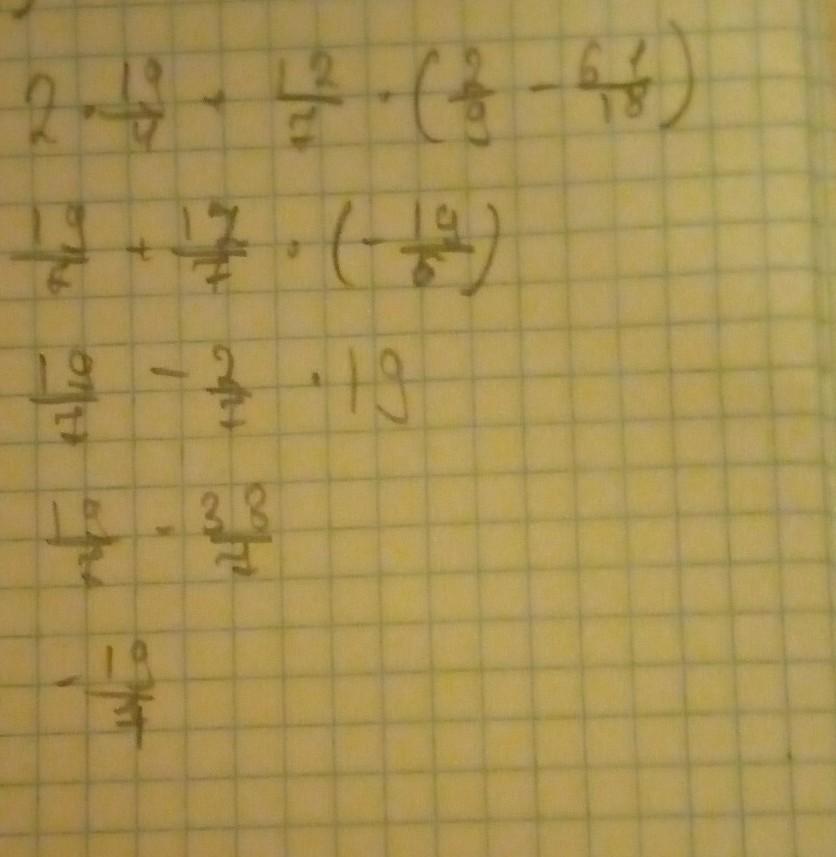 2 · 19/4 + 12/7 · (2/9 - 61/18)
19/2 + 12/7 · (- 19/6)
19/2 - 2/7 · 19
19/2 - 38/7
- 19/7